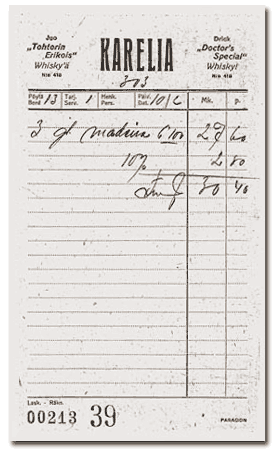 Juo KARELIA Drick
„Tohtorin Erikois" „Doctor's Special"
Whisky'ä Whiskyt
N:o 418 N:o 418
303
Pöytä Bord 13 Tarj. Serv. 1 Henk. Pers. Päiv. Dat. 10/2 Mk. p.
3 gl madeira 27 60
10% 2 80
30 40
Lask. - Räkn.
00213 39 PARAGON